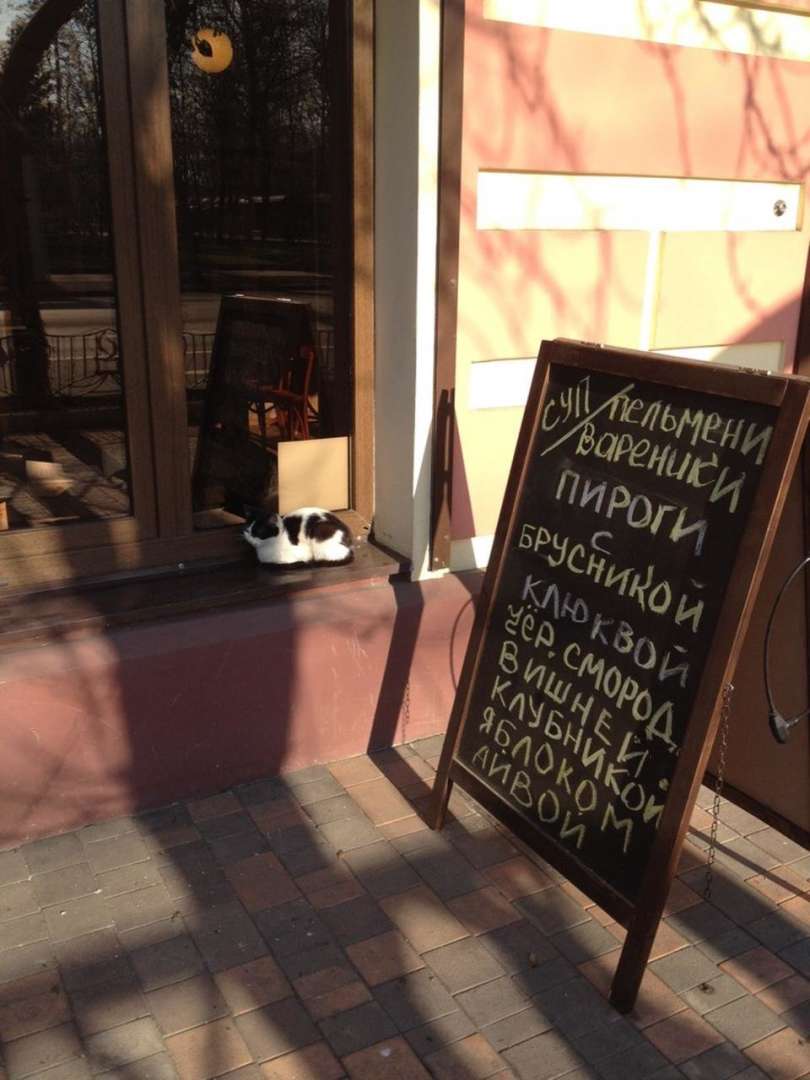 СУП/ПЕЛЬМЕНИ
ВАРЕНИКИ
ПИРОГИ
С
БРУСНИКОЙ
КЛЮКВОЙ
ЧЁР. СМОРОД.
ВИШНЕЙ
КЛУБНИКОЙ
ЯБЛОКОМ
АЙВОЙ